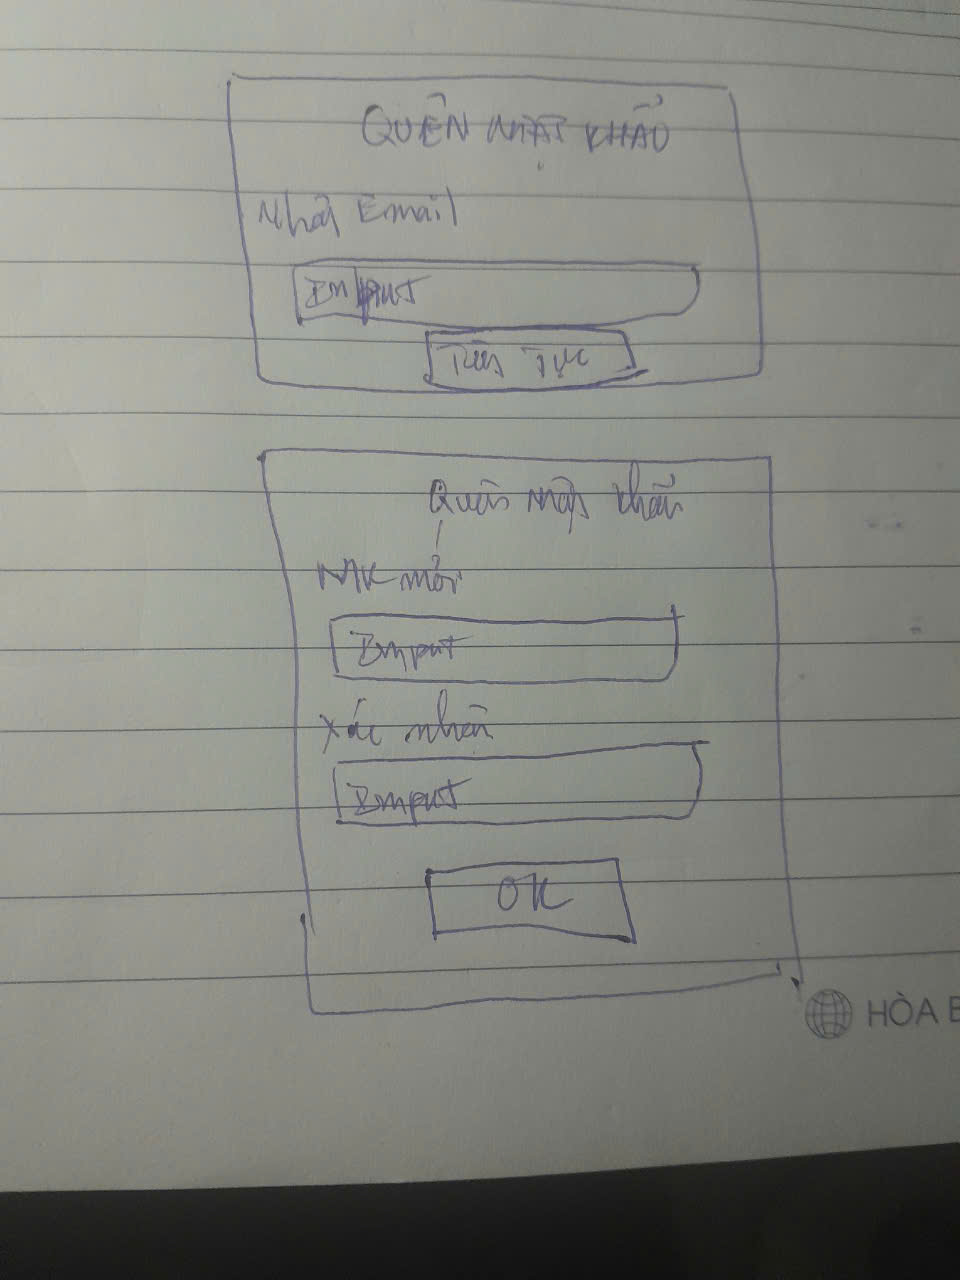 QUÊN MẬT KHẨU
Nhập Email
Input
Tiếp Tục
Quên mật khẩu
MK mới
Input
Xác nhận
Input
OK
HÒA B